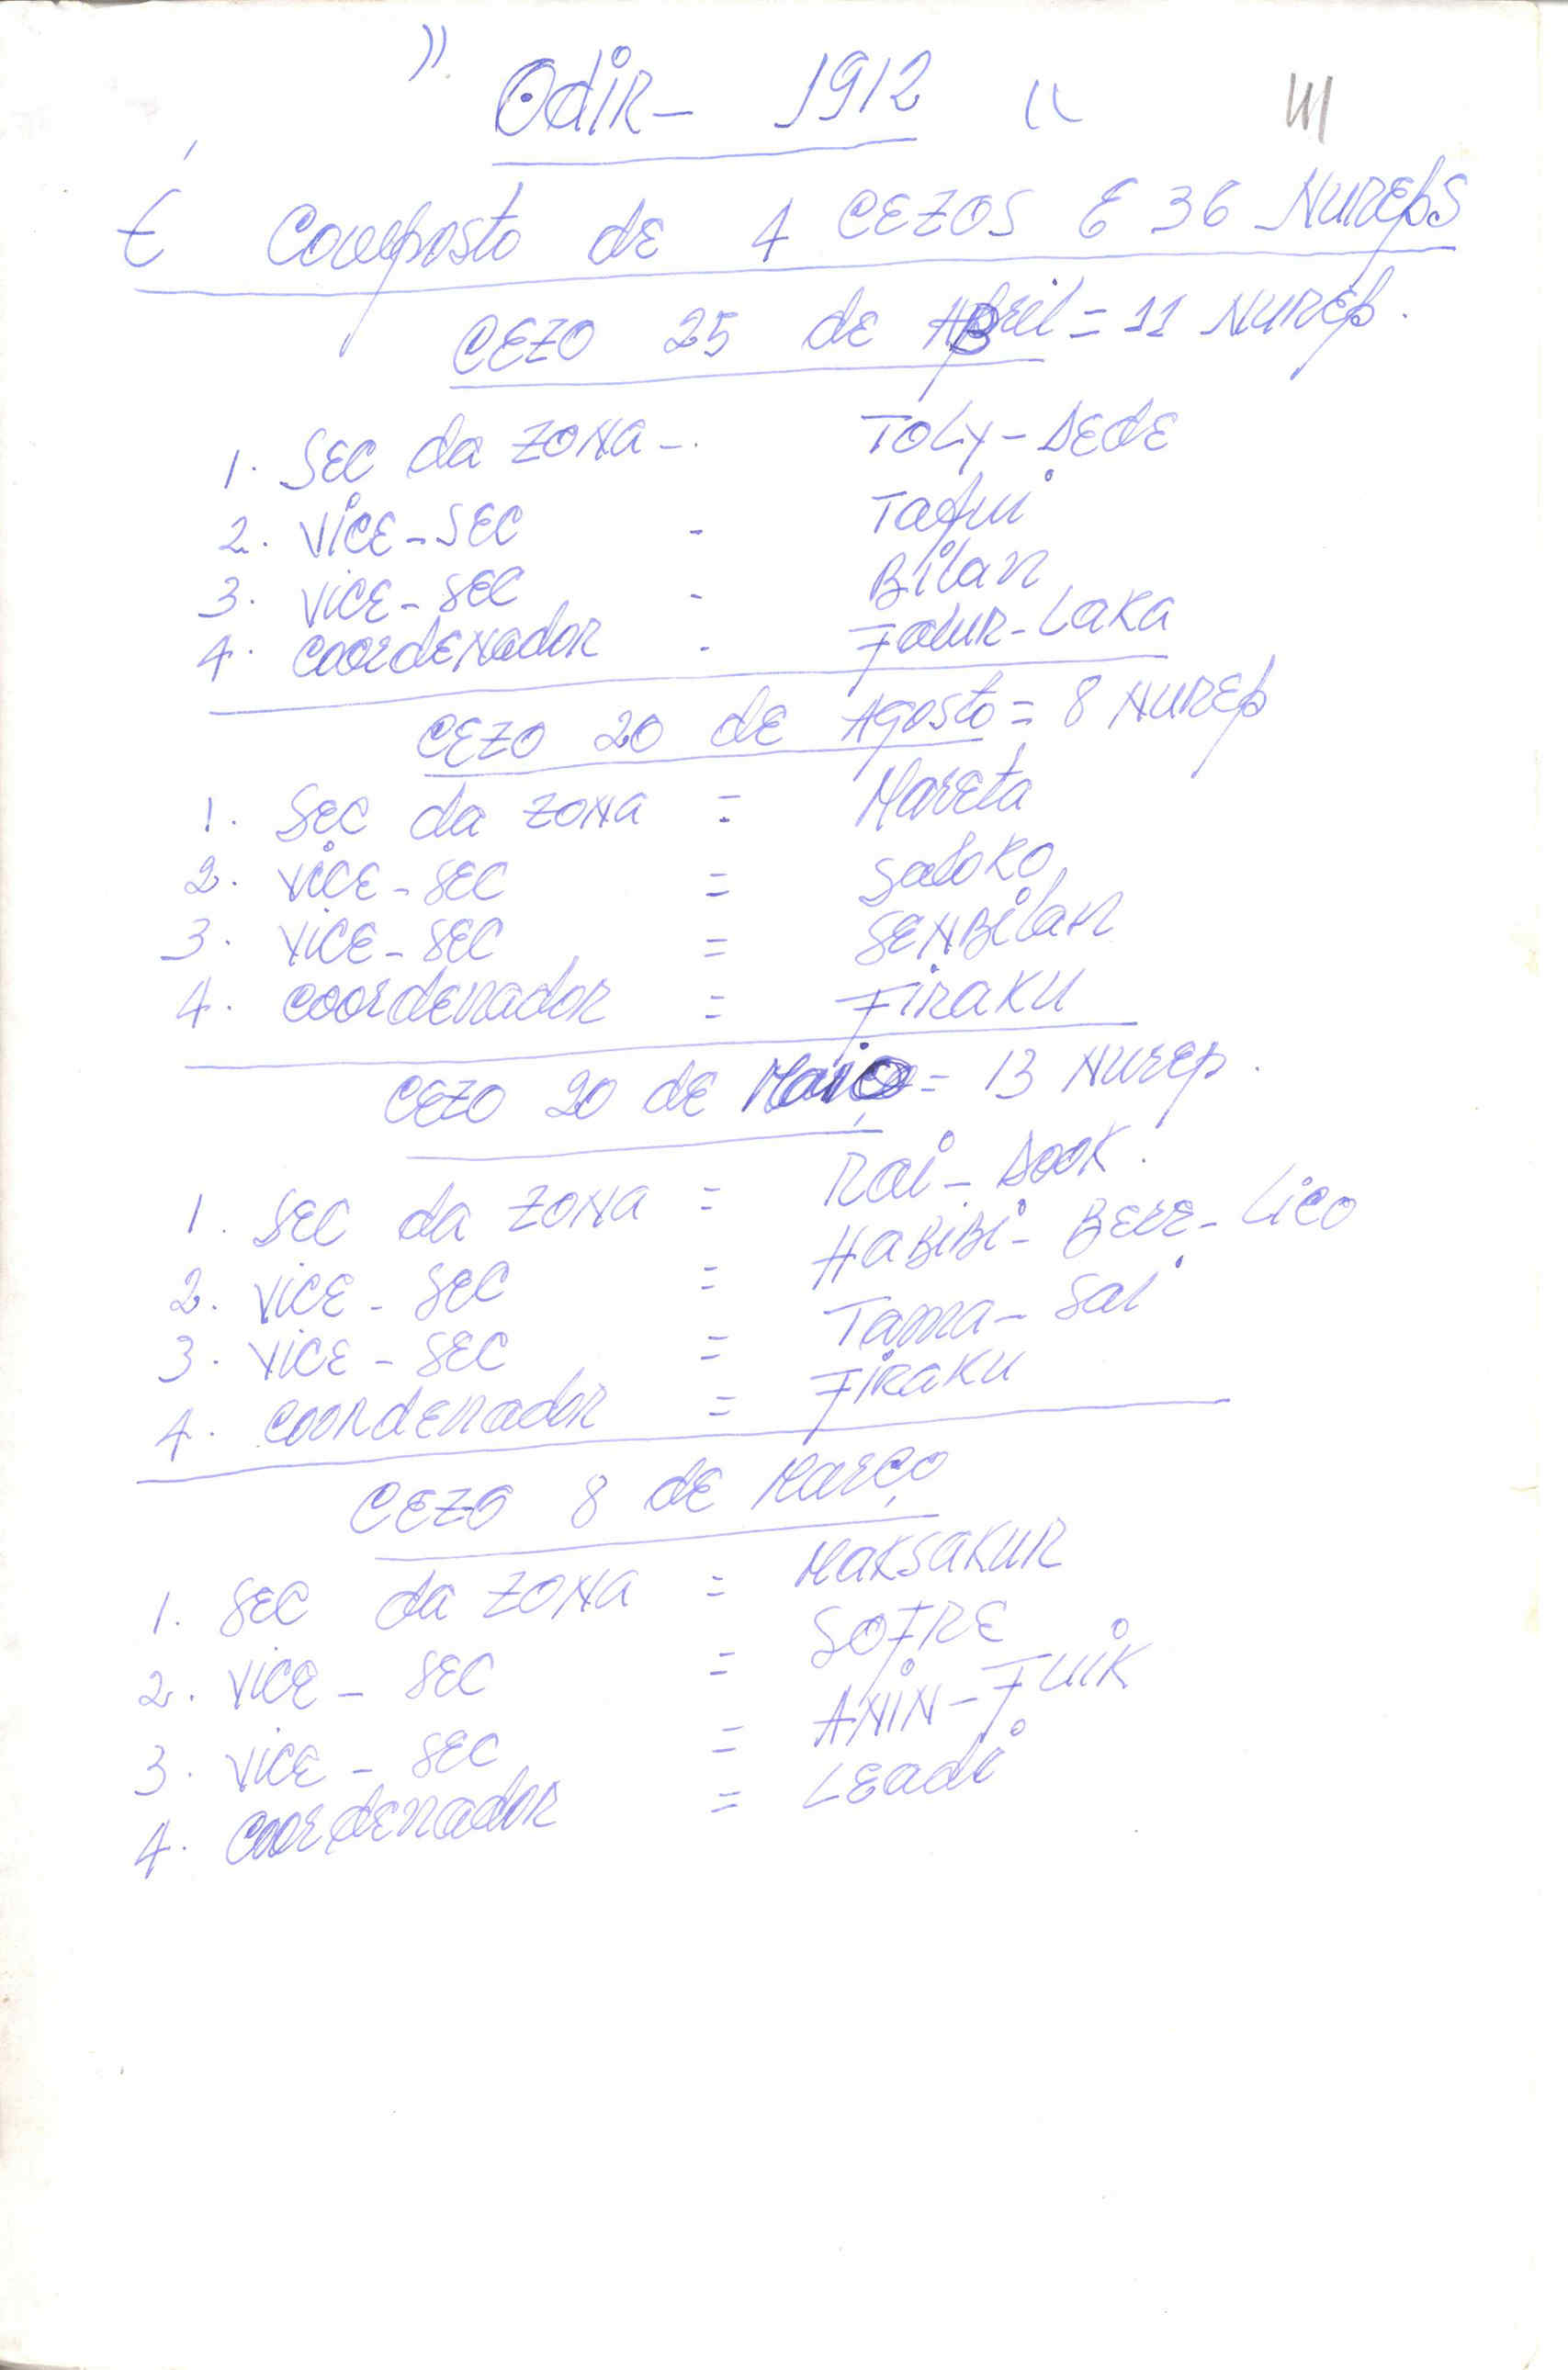 )) Odir - 1912 ((
É Composto de 4 CEZOS E 36 NUREPS
CEZO 25 de ABril = 11 NUREP.
1. SEC da ZONA - TOLY - DEDE
2. VICE - SEC -
3. VICE - SEC - BiLan
4. COORDENADOR - FALUR - LAKA
CEZO 20 de Agosto = 8 NUREP
1. SEC da ZONA = Mareta
2. VICE - SEC = SaloKO
3. VICE - SEC = SENBiLan
4. COORDENADOR = FiRAKU
CEZO 20 de Maio = 13 NUREP.
1. SEC da ZONA = Rai - DOOK.
2. VICE - SEC = HABiBi - BERE - Lico
3. VICE - SEC = Tama - Sai
4. COORDENADOR = FiRAKU
CEZO 8 de Março
1. SEC da ZONA = MAKSAKUR
2. VICE - SEC = SOFRE
3. VICE - SEC = ANiN - FUiK
4. COORDENADOR = LEADi